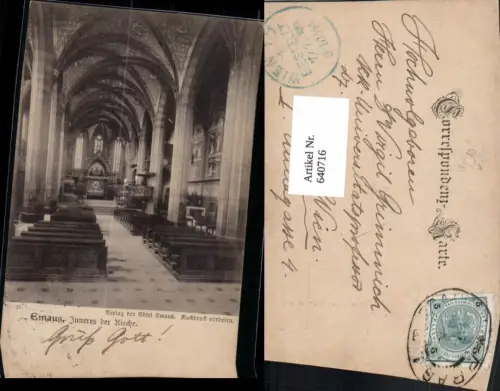 Verlag der Abtei Emaus. Nachdruck verboten.
Emaus, Inneres der Kirche.
Gruß Gott!
WIEN
Correspondenz-
Karte.
Hochwolgeboren
Herrn Dr Virgil Grimmich
k.k. Universitätsprofessor
Wien
I.
4.
Artikel Nr.
640716